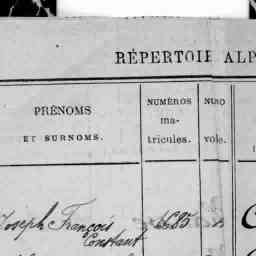 RÉPERTOIR ALP
PRÉNOMS
ET SURNOMS.
NUMÉROS
ma-
tricules.
NUMO
vole.
Joseph François
Constant
1685